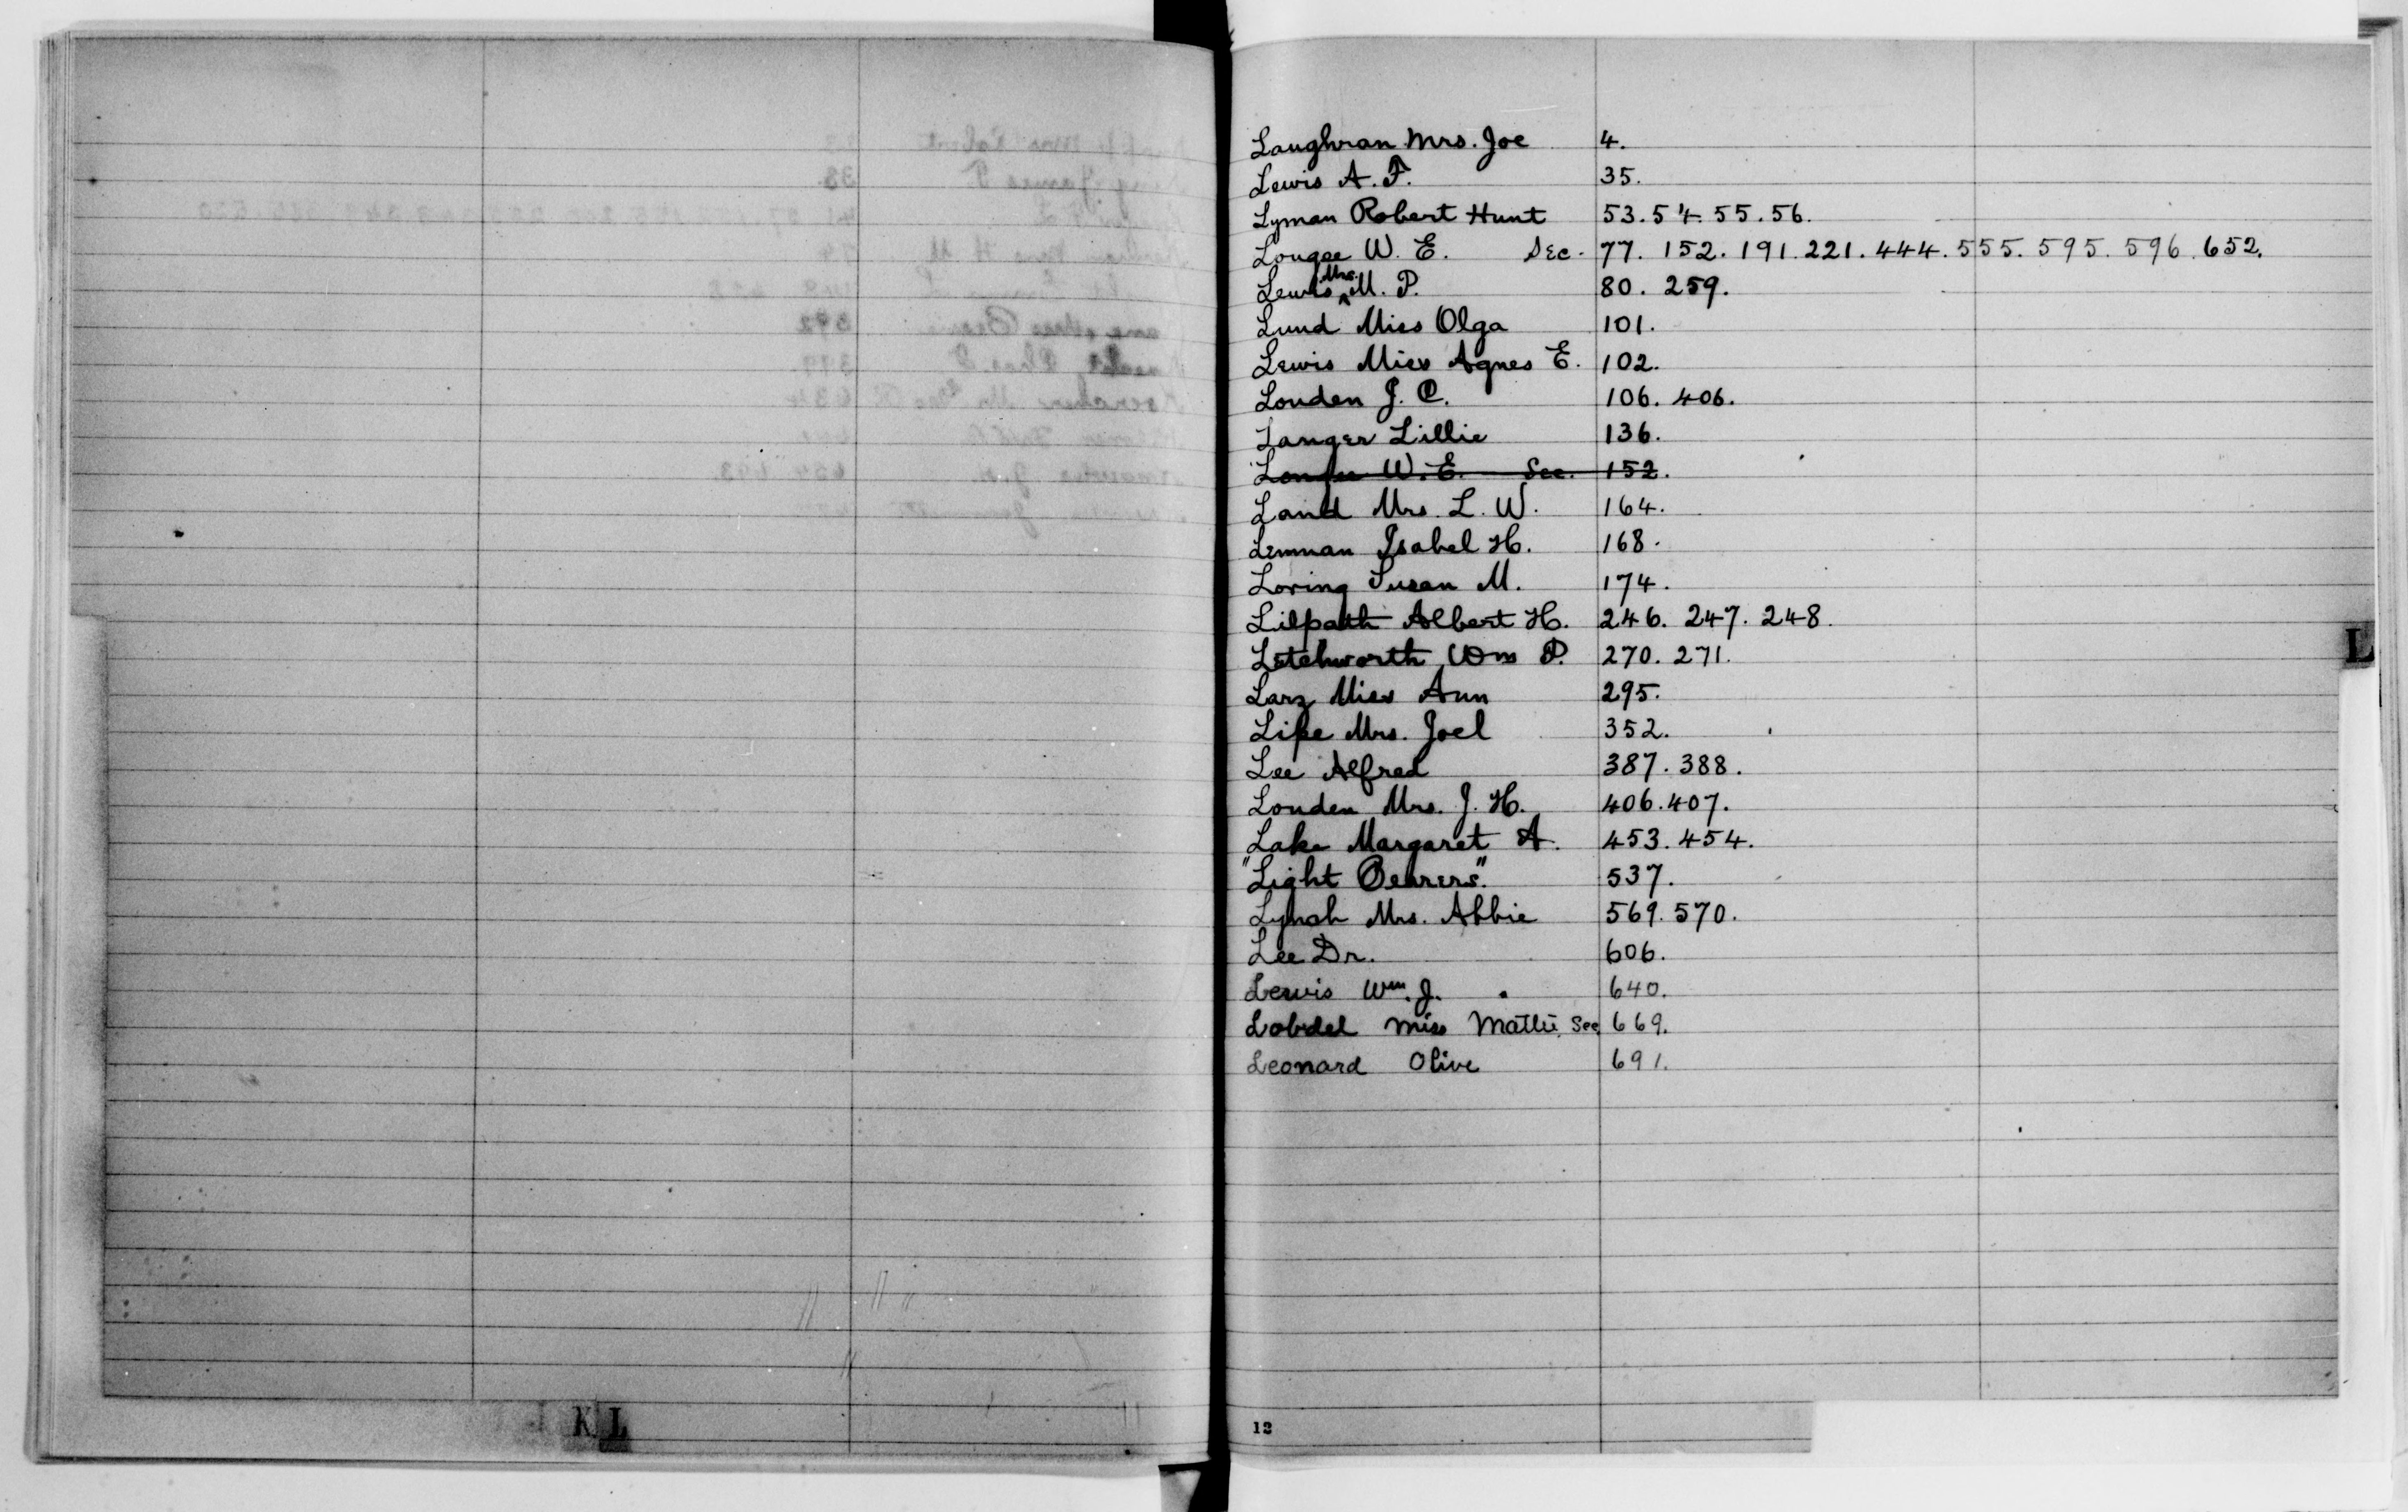 Laughran Mrs. Joe 4.
Lewis A. F. 35.
Lyman Robert Hunt 53. 54. 55. 56.
Lougee W. E. Sec. 77. 152. 191. 221. 444. 555. 595. 596. 652.
Lewis Mrs. M. P. 80. 259.
Lund Miss Olga 101.
Lewis Miss Agnes E. 102.
Louden J. C. 106. 406.
Langer Lillie 136.
Lougee W. E. Sec. 152.
Land Mrs. L. W. 164.
Lemman Isabel H. 168.
Loring Susan M. 174.
Lilpath Albert H. 246. 247. 248.
Letchworth Wm P. 270. 271.
Larz Miss Ann 295.
Lipe Mrs. Joel 352.
Lee Alfred 387. 388.
Louden Mrs. J. H. 406. 407.
Lake Margaret A. 453. 454.
"Light Bearers". 537.
Lynch Mrs. Abbie 569. 570.
Lee Dr. 606.
Lewis Wm. J. 640.
Lobdel Miss Mattie, Sec. 669.
Leonard Olive 691.
L
K L
12